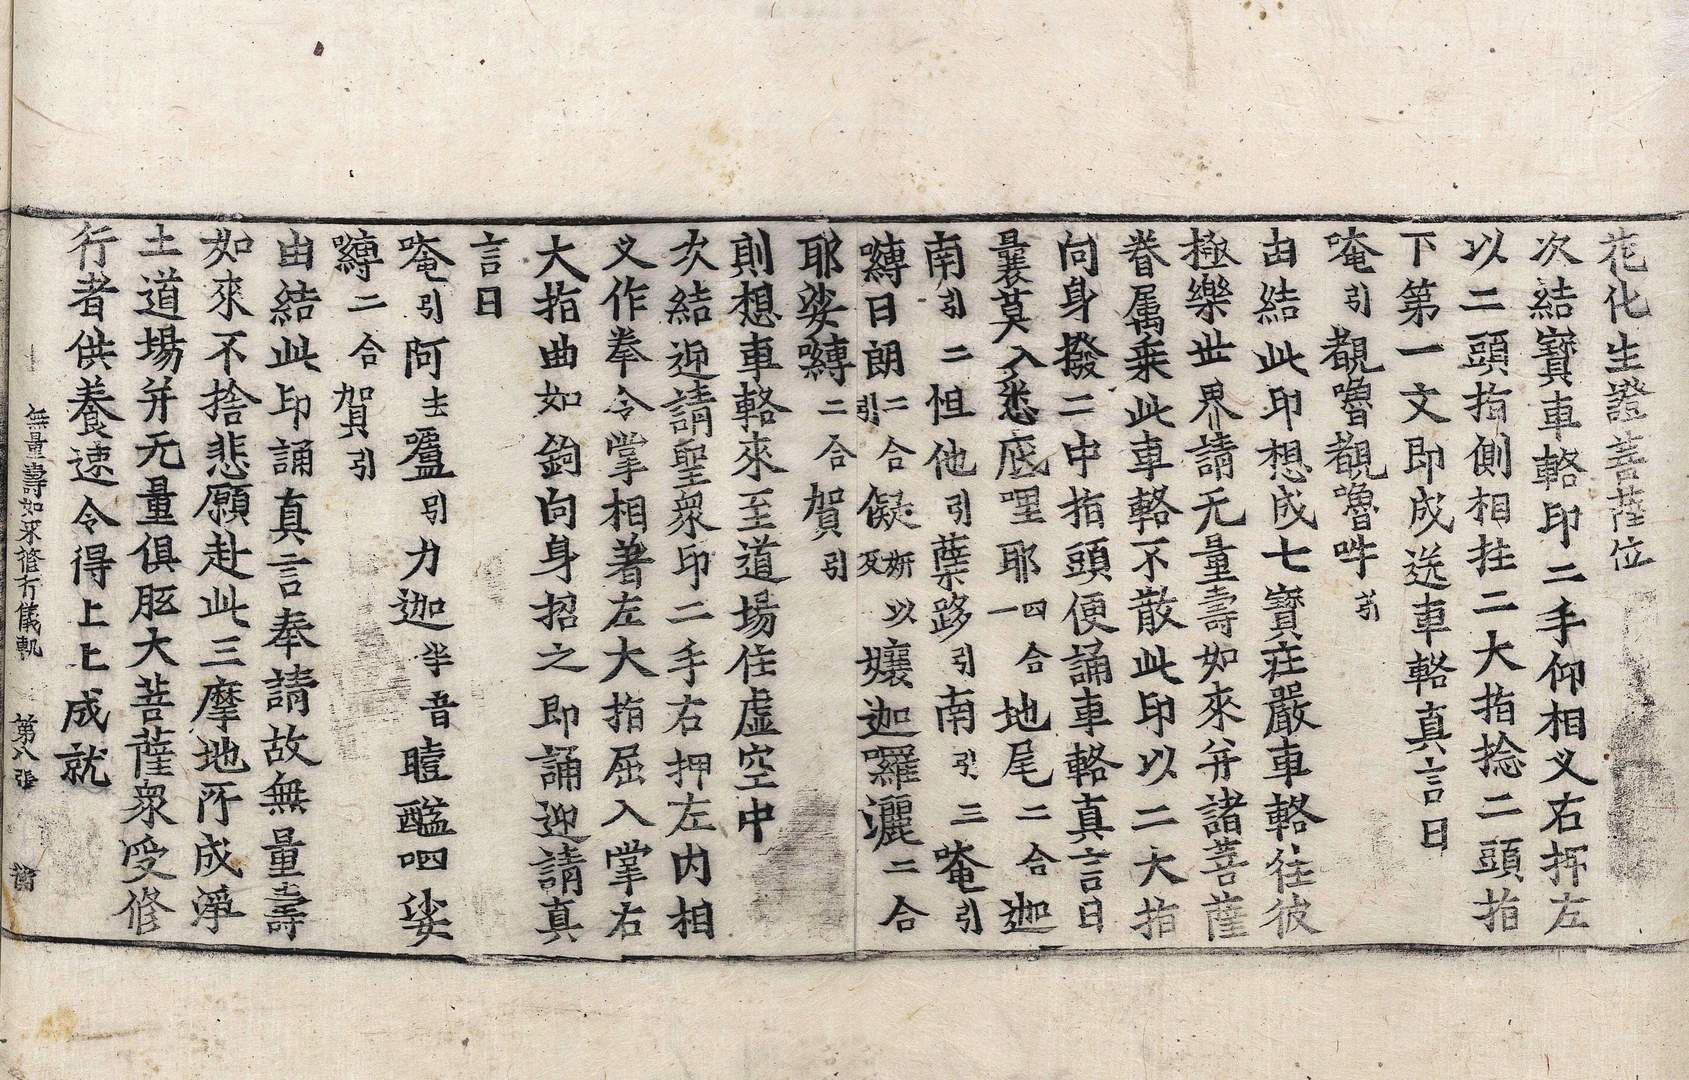 花化生證菩薩位
次結寶車輅印二手仰相叉右押左
以二頭指側相拄二大指捻二頭指
下第一文即成送車輅真言曰
唵引覩嚕覩嚕吽引
由結此印想成七寶莊嚴車輅往彼
極樂世界請无量壽如來并諸菩薩
眷属乗此車輅不散此印以二大指
向身撥二中指頭便誦車輅真言曰
曩莫入悉底哩耶四合一地尾二合迦
南引二怛他引蘖跢引南引三唵引
嚩日朗二合引儗妍以反孃迦囉灑二合
耶娑嚩二合賀引
則想車輅來至道場住虚空中
次結迎請聖衆印二手右押左内相
叉作拳令掌相著左大指屈入掌右
大指曲如鉤向身招之即誦迎請真
言曰
唵引阿去嚧引力迦半音曀醯呬娑
嚩二合賀引
由結此印誦真言奉請故無量壽
如來不捨悲願赴此三摩地所成淨
土道場并无量俱胝大菩薩衆受修
行者供養速令得上上成就
無量壽如来脩行儀軌 第八張